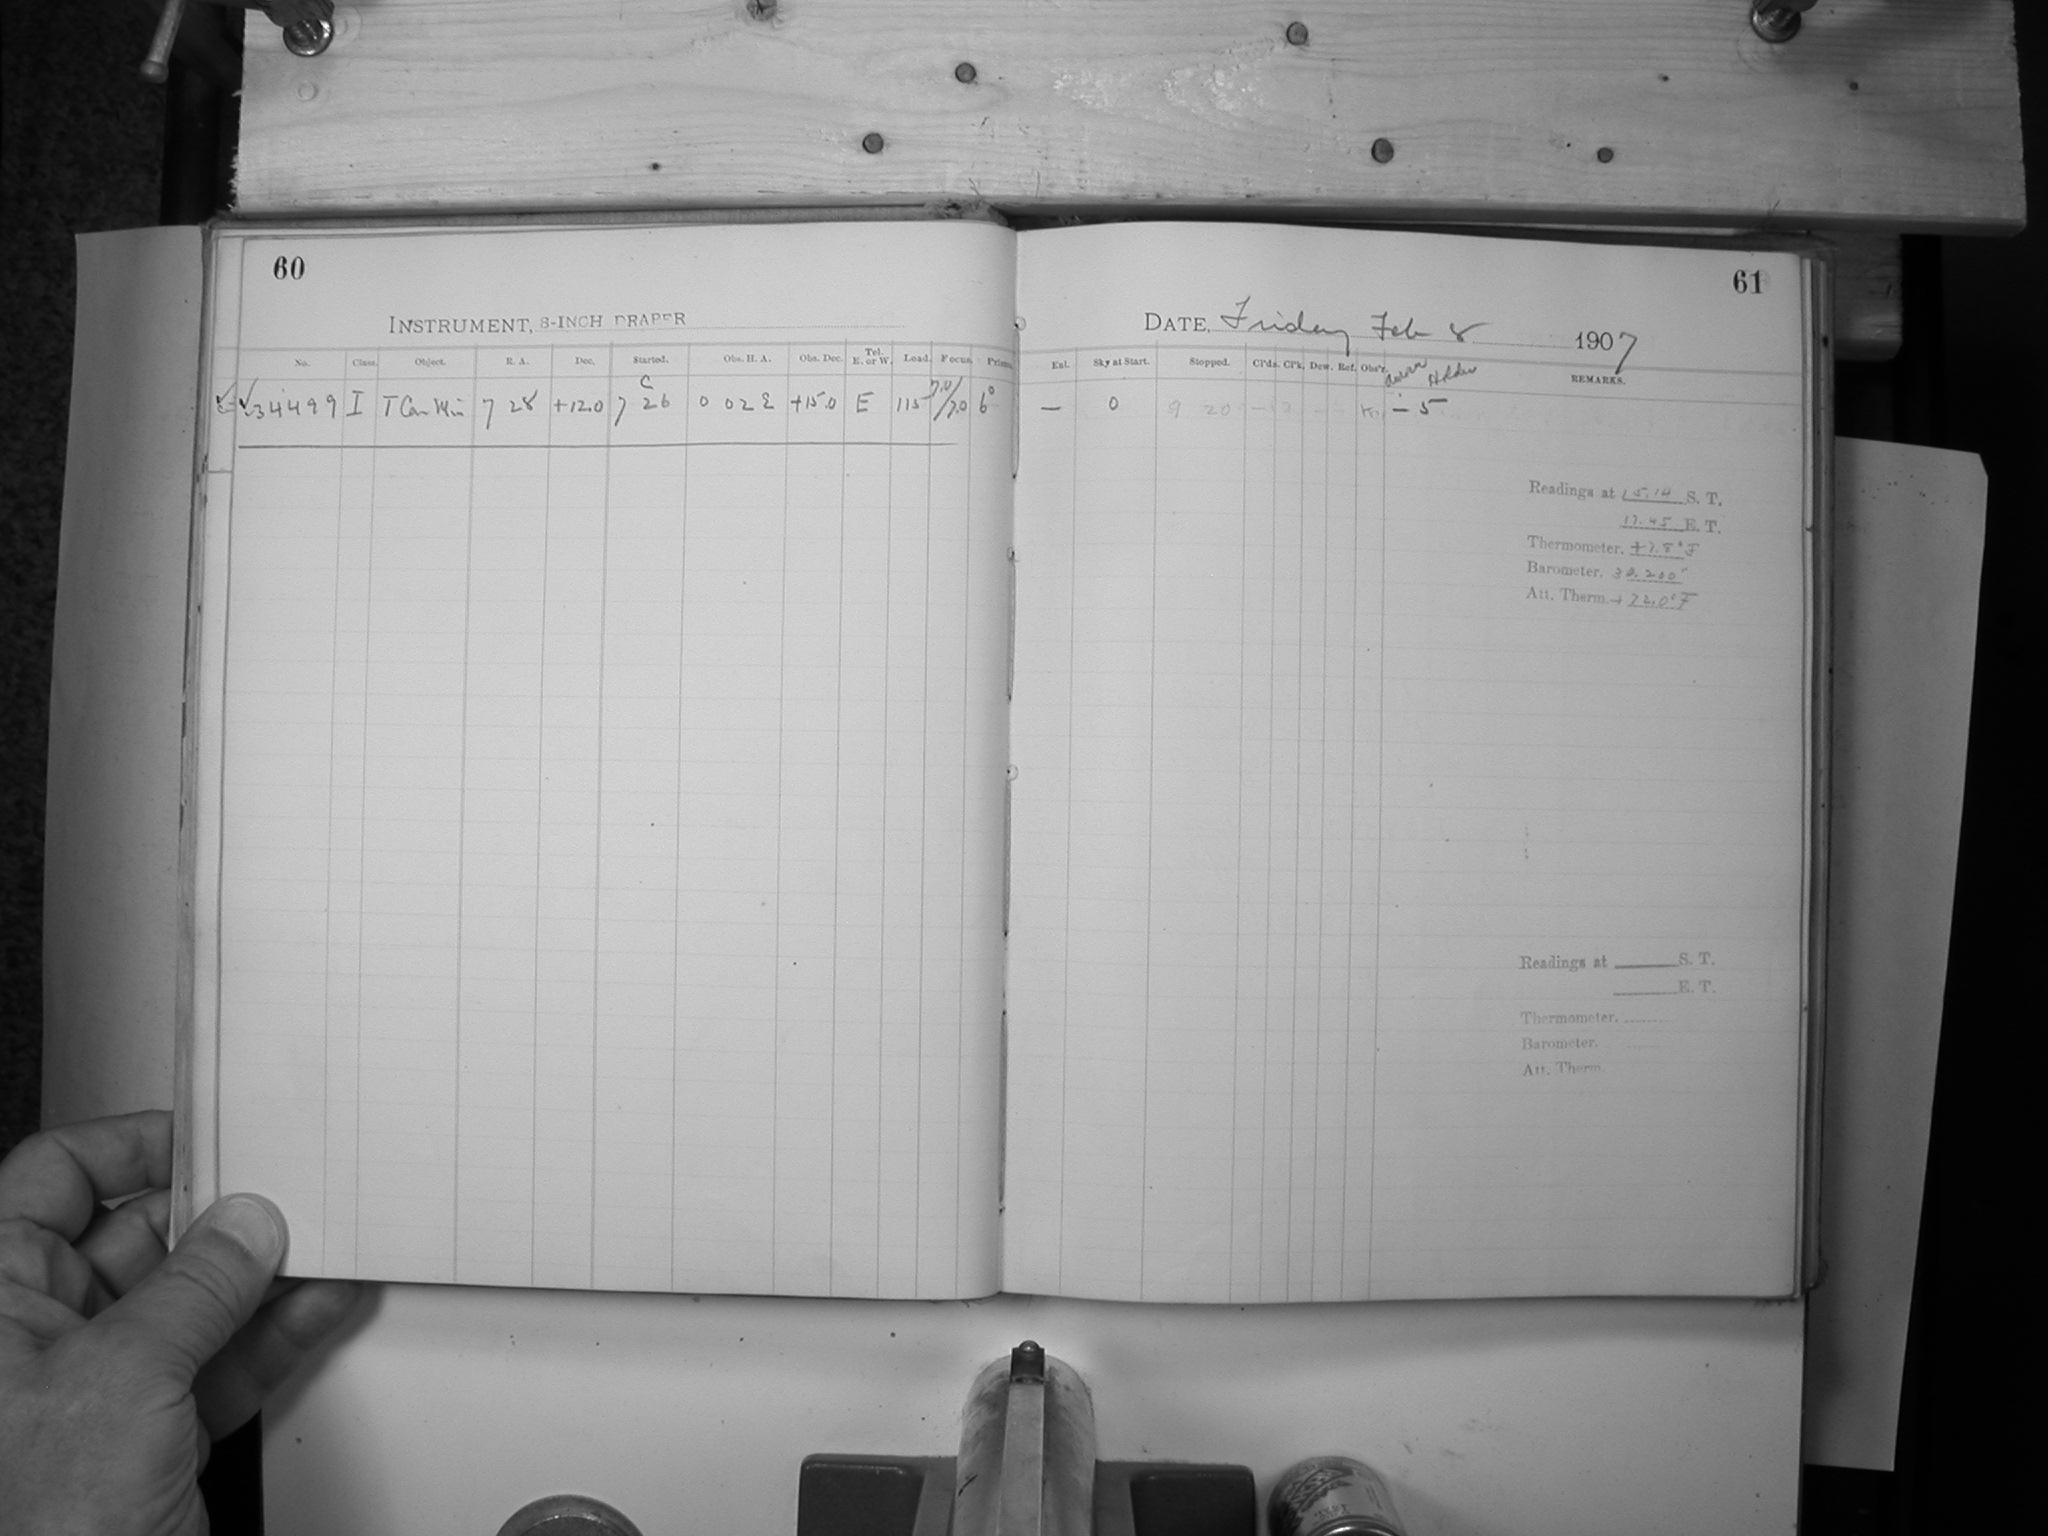 60
INSTRUMENT, 8-INCH DRAPER
No. Class. Object. R. A. Dec. Started. Obs. H. A. Obs. Dec. Tel. E. or W. Load. Focus. Prism.
34499 I T Can Min 7 28 +12.0 7 26 0 02 E +15.0 E 115 7.0/7.0 6°
61
DATE, Friday Feb 8 1907
Exl. Sky at Start. Stopped. Cl'ds. Cl'k. Dew. Ref. Obs'r. Holder REMARKS.
— 0 9 20 — 5
Readings at 15.14 S. T.
17.45 E. T.
Thermometer. +7.8° F
Barometer. 30.200"
Att. Therm. +72.0° F
Readings at S. T.
E. T.
Thermometer.
Barometer.
Att. Therm.